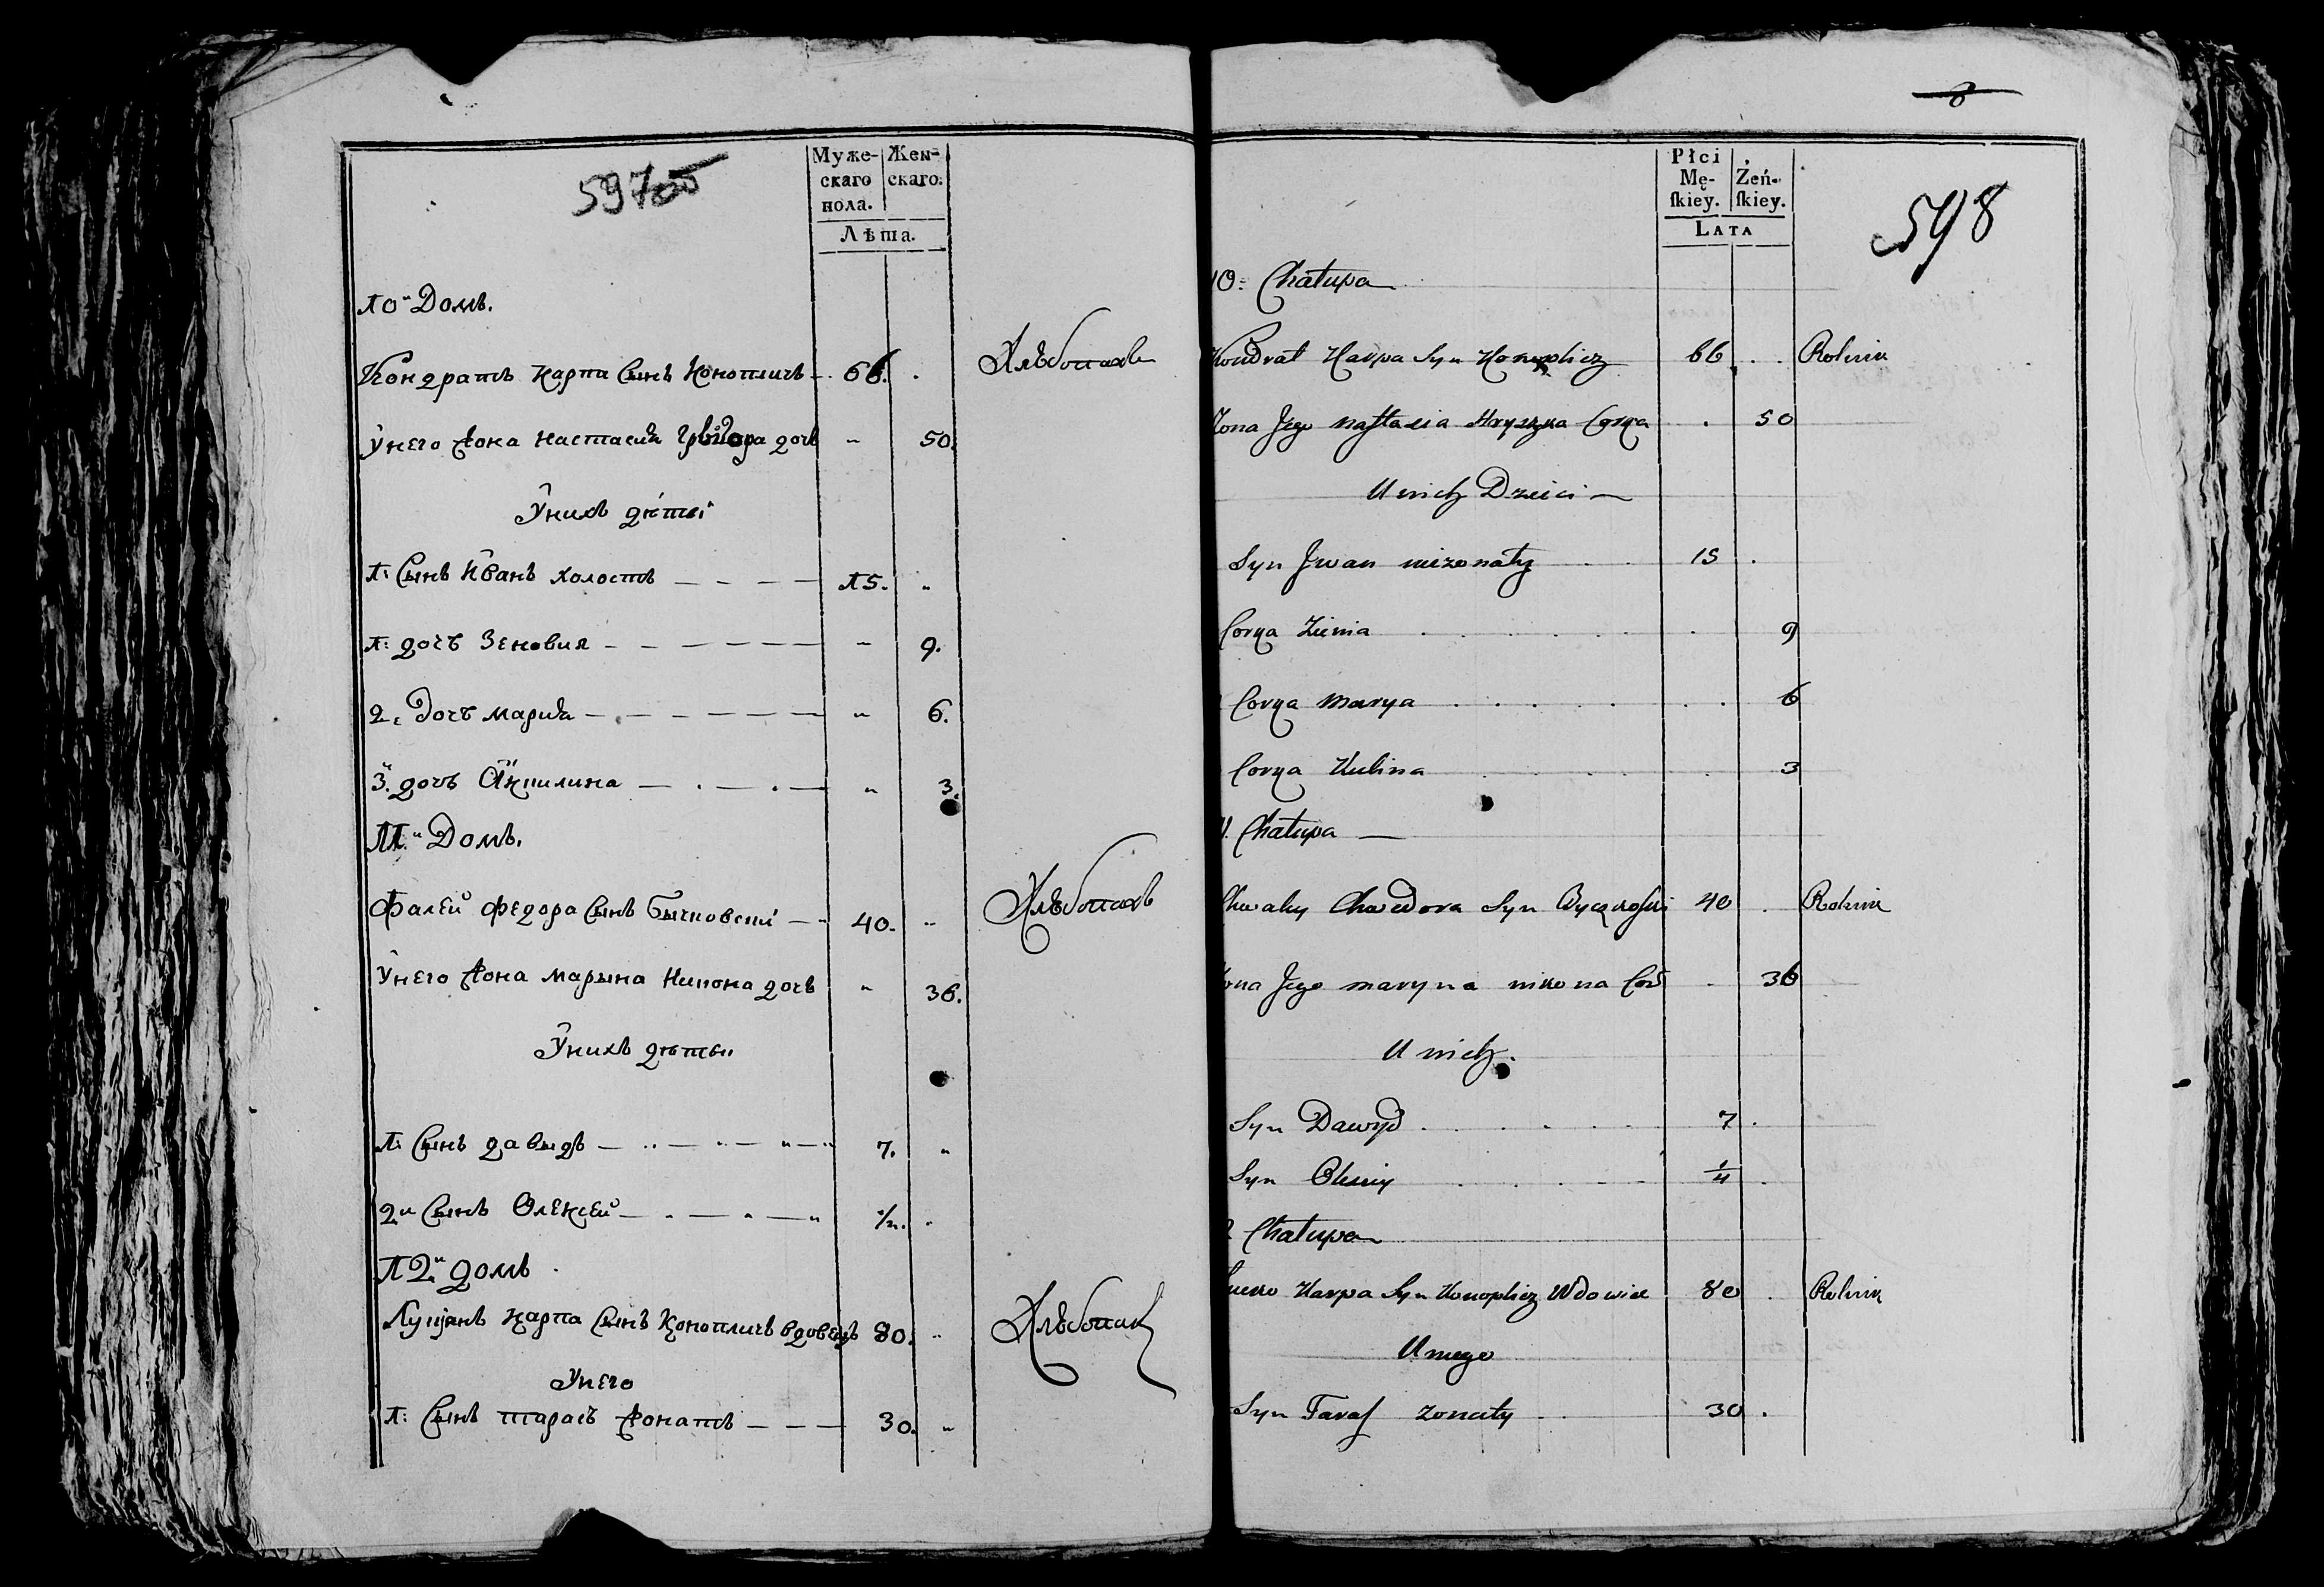 597об
Муже-
скаго
пола.
Жен-
скаго.
Лѣта.
10й Домъ.
Кондратъ Карпа Сынъ Конопличъ 66. Хлѣбопашъ
Унего жона Настасия дочь 50.
Унихъ дѣти
1: Сынъ Иванъ холостъ 15.
1: дочъ Зеновия 9.
2. Дочъ Мария 6.
3. дочъ Акилина 3.
11й Домъ.
Фалей Федора Сынъ Бычковски 40. Хлѣбопашъ
Унего жона Марына Никона дочь 36.
Унихъ дѣти
1: Сынъ Давыдъ 7.
2й Сынъ Олексей
12й домъ
Лукянъ Карпа Сынъ Конопличъ вдовецъ 80. Хлѣбопаш
Унего
1: Сынъ тарасъ жонатъ 30.
8
598
Płci
Mę-
ſkiey.
Żeń-
ſkiey.
LATA
10. Chałupa
Kondrat Karpa Syn Konoplicz 66 Rolnik
Żona Jego Nastasia Hryszka Corka 50
U nich Dzieci
Syn Jwan nieżonaty 15
Corka Zienia 9
Corka Marya 6
Corka Kulina 3
11. Chałupa
Chwaley Chwedora Syn Byczkoski 40 Rolnik
Żona Jego Maryna Nikona Cor 36
U nich.
Syn Dawyd 7
Syn Olexiy 1/4
2 Chałupa
Karpa Syn Konoplicz Wdowiec 80 Rolnik
U niego
Syn Taras żonaty 30